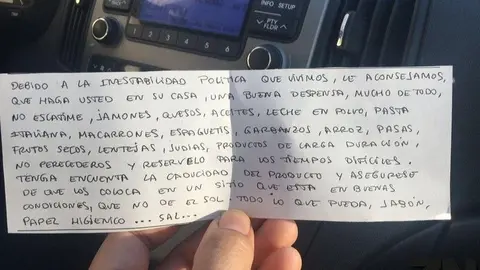 INFO SETUP
PTY
FLDR
1 2 3 4 5 6
DEBIDO A LA INESTABILIDAD POLÍTICA QUE VIVIMOS, LE ACONSEJAMOS,
QUE HAGA USTED EN SU CASA, UNA BUENA DESPENSA, MUCHO DE TODO,
NO ESCATIME, JAMONES, QUESOS, ACEITES, LECHE EN POLVO, PASTA
ITALIANA, MACARRONES, ESPAGUETIS, GARBANZOS, ARROZ, PASAS,
FRUTOS SECOS, LENTEJAS, JUDIAS, PRODUCTOS DE LARGA DURACIÓN,
NO PERECEDEROS Y RESERVELO PARA LOS TIEMPOS DIFÍCILES.
TENGA ENCUENTA LA CADUCIDAD DEL PRODUCTO Y ASEGURESE
DE QUE LOS COLOCA EN UN SITIO QUE ESTA EN BUENAS
CONDICIONES, QUE NO DE EL SOL. TODO LO QUE PUEDA, JABÓN,
PAPEL HIGIEMCO... SAL...